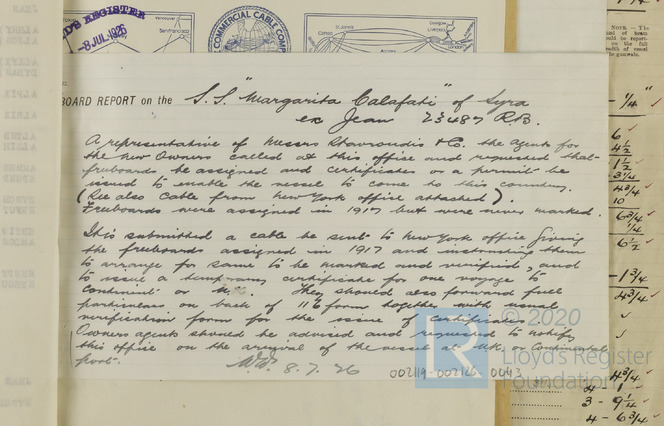 D'S REGISTER
-8 JUL 1926
Vancouver
San Francisco
COMMERCIAL CABLE COMP
St. Johns
Canso
Azores
Glasgow
Liverpool
London
NOTE. - The
BOARD REPORT on the S.S. "Margarita Calafati" of Syra
ex Jean 23487 R.B.
A representative of Messrs Stavroudis & Co. the agents for
the new Owners called at this office and requested that
freeboards be assigned and certificates or a permit be
issued to enable the vessel to come to this country.
(See also cable from New York office attached).
Freeboards were assigned in 1917 but were never marked.
It is submitted a cable be sent to New York office giving
the freeboards assigned in 1917 and instructing them
to arrange for same to be marked and verified, and
to issue a temporary certificate for one voyage to
Continent or UK. They should also forward full
particulars on back of 116 form together with usual
verification form for the issue of certificate.
Owners agents should be advised and requested to notify
this office on the arrival of the vessel at UK or Continental
port.
8.7.26
002119-002126-0043
© 2020
Lloyd's Register
Foundation
1/4
6
4 1/2
1 1/2
3 1/4
4 3/4
10
6 3/4
1/4
6 1/2
-1 3/4
4 3/4
4 3/4
4 - 1
3 - 9 1/4
4 - 6 3/4